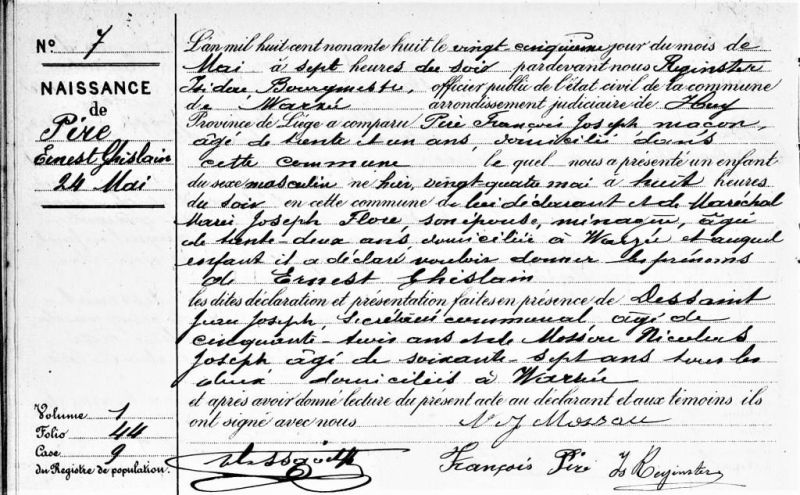 N° 7
NAISSANCE
de
Pire
Ernest Ghislain
24 Mai
L'an mil huit cent nonante huit le vingt-cinquième jour du mois de
Mai à sept heures du soir pardevant nous Reginster
Isidore Bourgmestre, officier public de l'état civil de la commune
de Warzée arrondissement judiciaire de Huy
Province de Liége a comparu Piré François Joseph maçon,
âgé de trente et un ans, domicilié dans
cette commune le quel nous a présenté un enfant
du sexe masculin né hier, vingt-quatre mai à huit heures
du soir en cette commune de lui déclarant et de Maréchal
Marie Joseph Flore son épouse, ménagère, âgée
de trente-deux ans, domiciliée à Warzée et auquel
enfant il a déclaré vouloir donner les prénoms
de Ernest Ghislain
les dites déclaration et présentation faites en présence de Dessaint
Jean Joseph, Secrétaire communal âgé de
cinquante-trois ans et de Mossou Nicolas
Joseph âgé de soixante-sept ans tous les
deux domiciliés à Warzée
et après avoir donné lecture du présent acte au déclarant et aux témoins ils
ont signé avec nous N J Mossou
François Piré Is Reginster
Volume 1
Folio 44
Case 9
du Registre de population.